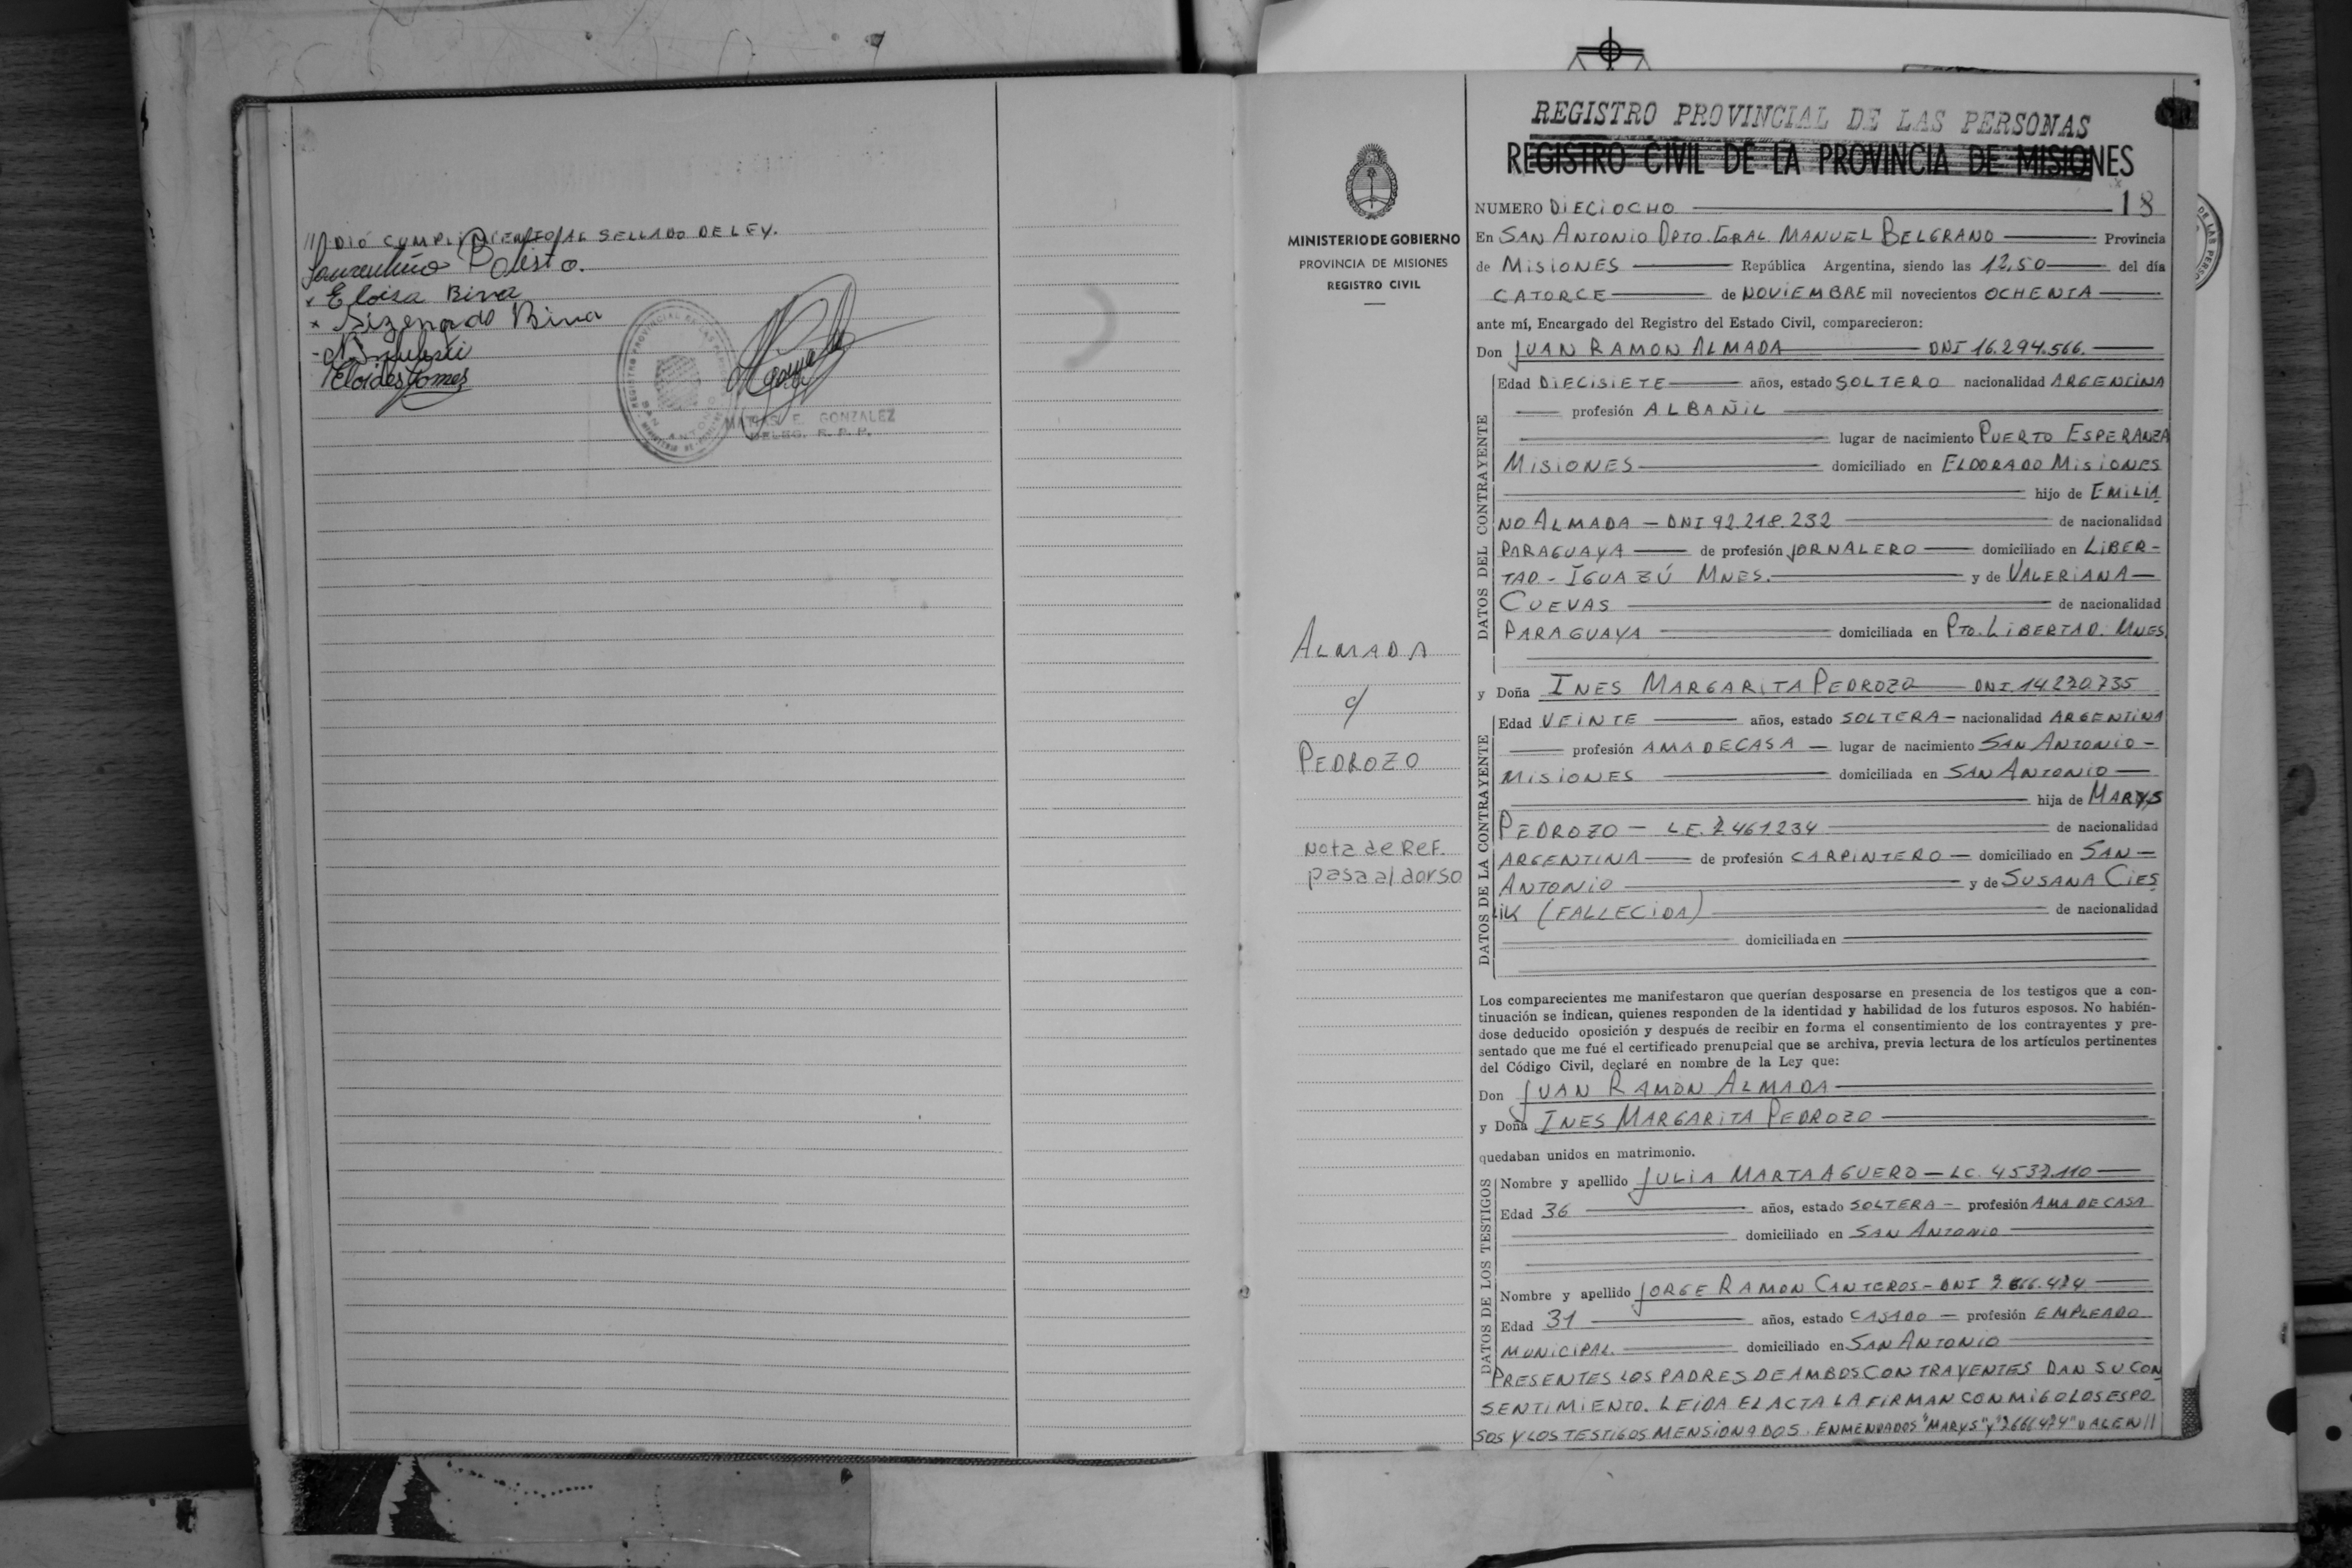 //DIÓ CUMPLIMIENTO AL SELLADO DE LEY.
Laurentino Polisto.
x Eloisa Biva
x Sizenado Biva
Eloides Gomes
MATIAS E. GONZALEZ
DELEG. R. P. P.
REGISTRO PROVINCIAL DE LAS PERSONAS
REGISTRO CIVIL DE LA PROVINCIA DE MISIONES
MINISTERIO DE GOBIERNO
PROVINCIA DE MISIONES
REGISTRO CIVIL
ALMADA
c/
PEDROZO
Nota de Ref.
pasa al dorso
NUMERO DIECIOCHO 18
En SAN ANTONIO DPTO. GRAL. MANUEL BELGRANO Provincia
de MISIONES República Argentina, siendo las 12,50 del día
CATORCE de NOVIEMBRE mil novecientos OCHENTA
ante mí, Encargado del Registro del Estado Civil, comparecieron:
Don JUAN RAMON ALMADA DNI 16.294.566.
DATOS DEL CONTRAYENTE
Edad DIECISIETE años, estado SOLTERO nacionalidad ARGENTINA
profesión ALBAÑIL
lugar de nacimiento PUERTO ESPERANZA
MISIONES domiciliado en ELDORADO MISIONES
hijo de EMILIA
NO ALMADA - DNI 92.218.232 de nacionalidad
PARAGUAYA de profesión JORNALERO domiciliado en LIBER-
TAD - IGUAZÚ MNES. y de VALERIANA
CUEVAS de nacionalidad
PARAGUAYA domiciliada en PTO. LIBERTAD. MNES.
y Doña INES MARGARITA PEDROZO DNI. 14.270.735
DATOS DE LA CONTRAYENTE
Edad VEINTE años, estado SOLTERA - nacionalidad ARGENTINA
profesión AMA DE CASA - lugar de nacimiento SAN ANTONIO -
MISIONES domiciliada en SAN ANTONIO
hija de MARYS
PEDROZO - L.E. 7.461.234 de nacionalidad
ARGENTINA de profesión CARPINTERO - domiciliado en SAN -
ANTONIO y de SUSANA CIES
LIK (FALLECIDA) de nacionalidad
domiciliada en
Los comparecientes me manifestaron que querían desposarse en presencia de los testigos que a con-
tinuación se indican, quienes responden de la identidad y habilidad de los futuros esposos. No habién-
dose deducido oposición y después de recibir en forma el consentimiento de los contrayentes y pre-
sentado que me fué el certificado prenupcial que se archiva, previa lectura de los artículos pertinentes
del Código Civil, declaré en nombre de la Ley que:
Don JUAN RAMON ALMADA
y Doña INES MARGARITA PEDROZO
quedaban unidos en matrimonio.
DATOS DE LOS TESTIGOS
Nombre y apellido JULIA MARTA AGUERO - LC. 4.537.110
Edad 36 años, estado SOLTERA - profesión AMA DE CASA
domiciliado en SAN ANTONIO
Nombre y apellido JORGE RAMON CANTEROS - DNI 7.666.474
Edad 31 años, estado CASADO - profesión EMPLEADO
MUNICIPAL. domiciliado en SAN ANTONIO
PRESENTES LOS PADRES DE AMBOS CONTRAYENTES DAN SU CON
SENTIMIENTO. LEIDA EL ACTA LA FIRMAN CONMIGO LOS ESPO
SOS Y LOS TESTIGOS MENSIONADOS. ENMENDADOS "MARYS" Y "7666474" VALEN//